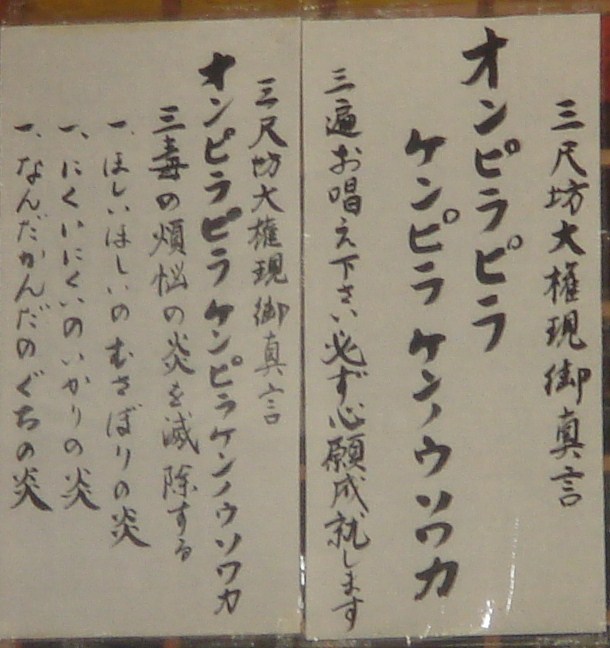 三尺坊大権現御真言
オンピラピラ
ケンピラケンノウソワカ
三遍お唱え下さい必ず心願成就します
三尺坊大権現御真言
オンピラピラケンピラケンノウソワカ
三毒の煩悩の炎を滅除する
一、ほしいほしいのむさぼりの炎
一、にくいにくいのいかりの炎
一、なんだかんだのぐちの炎